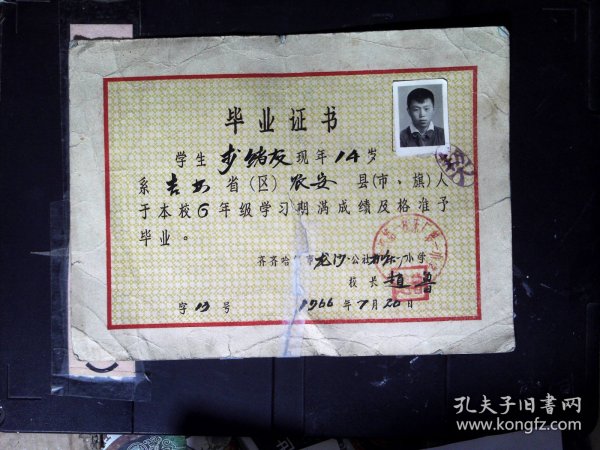 毕业证书
学生 绪友 现年14岁
系吉林省(区)农安县(市、旗)人
于本校6年级学习期满成绩及格准予
毕业。
齐齐哈尔市龙沙公社 小学
校长 赵鲁
字13号 1966年7月20日
孔夫子旧书网
www.kongfz.com